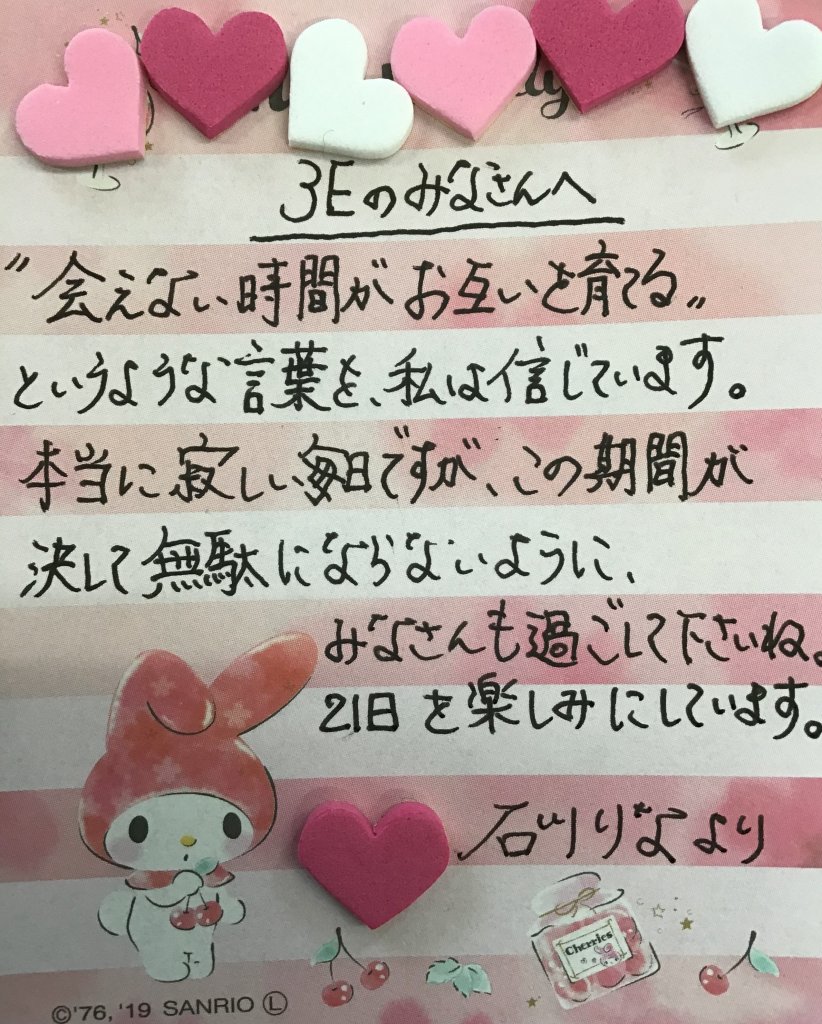 3Eのみなさんへ
"会えない時間がお互いを育てる"
というような言葉を、私は信じています。
本当に寂しい毎日ですが、この期間が
決して無駄にならないように、
みなさんも過ごして下さいね。
21日を楽しみにしています。
石川りなより
Cherries
©'76, '19 SANRIO Ⓛ